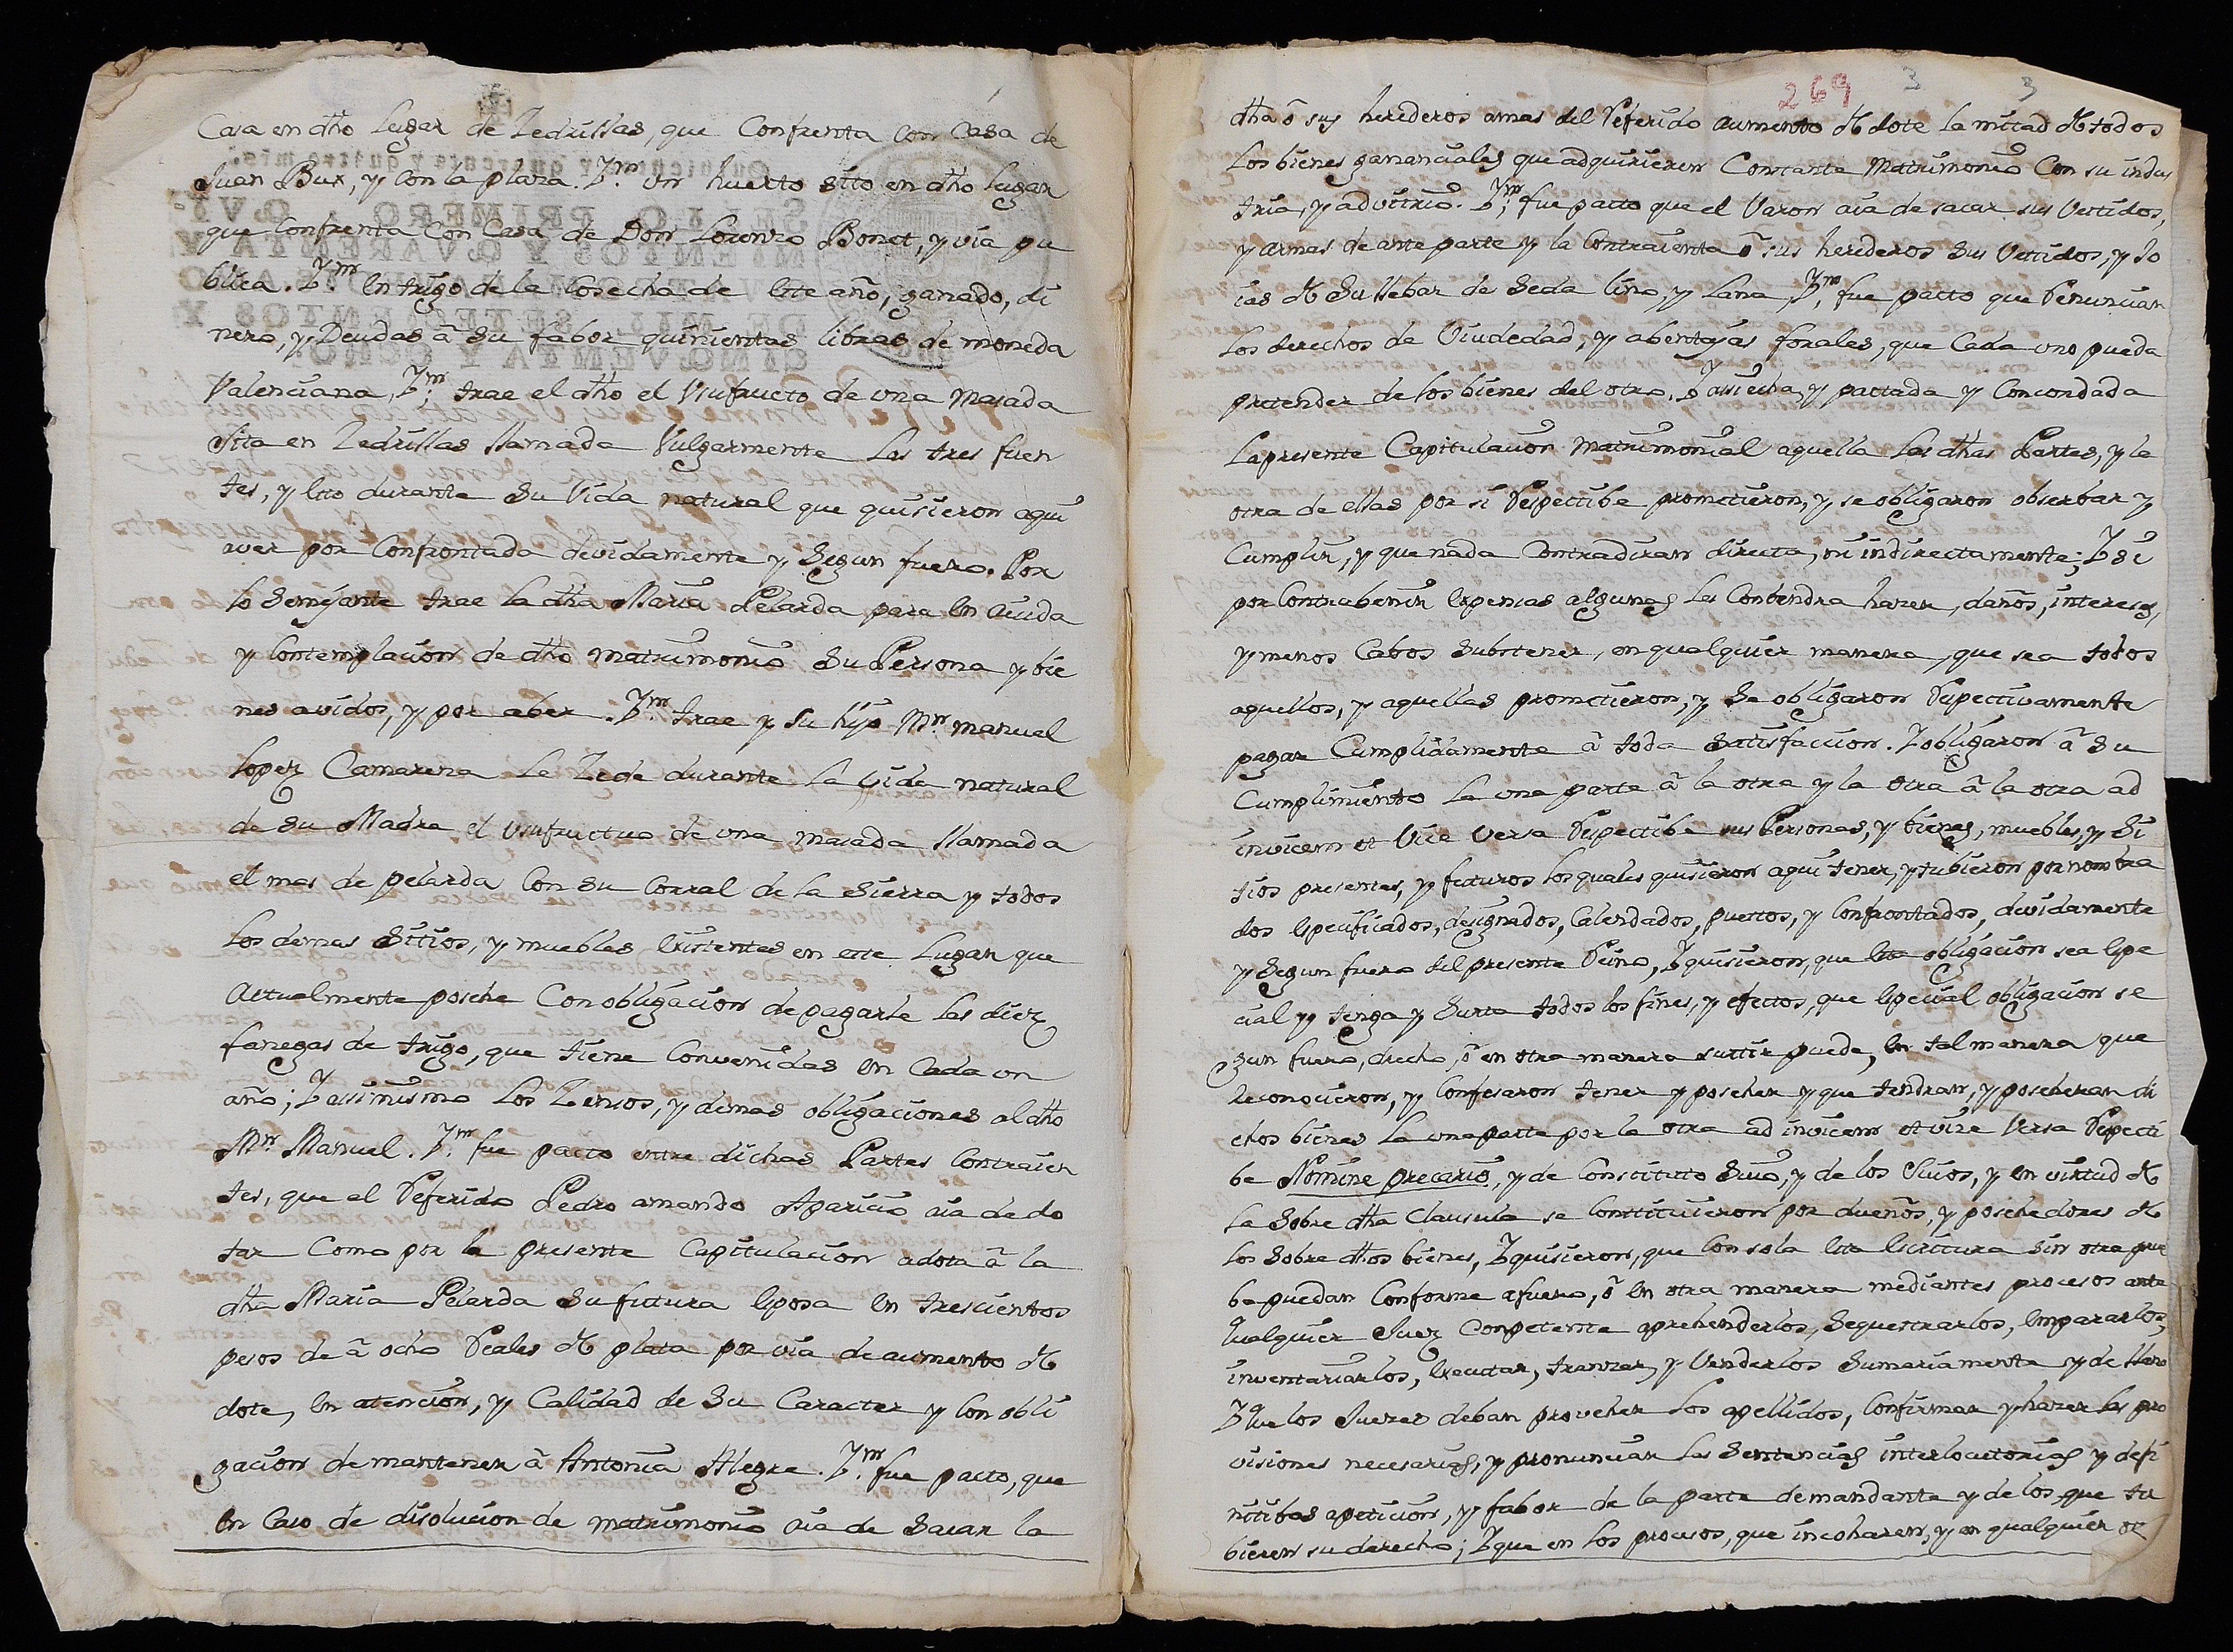 Casa en dho Lugar de Zedrillas, que Confrenta con Casa de
Juan Bux, y con la plaza. Ytm. un huerto sito en dho Lugar
que Confrenta Con Casa de Don Lorenzo Bonet, y via pu
blica. Ytm. en trigo de la Cosecha de este año, ganado, di
nero, y Deudas â su fabor quinientas libras de moneda
Valenciana, Ytm. trae el dho el Usufructo de una Masada
sita en Zedrillas llamada Vulgarmente Las tres fuen
tes, y esto durante su Vida natural que quisieron aqui
aver por Confrontada devidamente y Segun fuero. Por
lo Semejante trae La dha Maria Pelarda para en aiuda
y Contemplacion de dho matrimonio su Persona y bie
nes avidos, y por aber. Ytm. trae y su hijo Mn. Manuel
Lopez Camarena Le Zede durante la vida natural
de su Madre el Usufructuo de una masada llamada
el mas de pelarda Con su Corral de la Sierra y todos
Los demas Sitios, y muebles Existentes en este Lugar que
Actualmente posehe Con obligacion de pagarle las diez
fanegas de trigo, que tiene Convenidas en Cada un
año; Y assimismo Los Zensos, y demas obligaciones al dho
Mn. Manuel. Ytm. fue pacto entre dichas Partes Contraien
tes, que el Referido Pedro amando Aparicio aia de do
tar Como por la presente Capitulacion adota â la
dha Maria Pelarda su futura Esposa en trescientos
pesos de â ocho Reales de plata por via de aumento de
dote, en atencion, y Calidad de su Caracter y Con obli
gacion de mantener â Antonia Alegre. Ytm. fue pacto, que
en Caso de disolucion de matrimonio aia de Sacar la
269 3 3
dha ô sus herederos amas del Referido aumento de dote la mitad de todos
Los bienes gananciales que adquirieren Constante Matrimonio Con su indus
tria, y advitrio. Ytm; fue pacto que el Varon aia de sacar sus Vestidos,
y armas de ante parte y la Contraienta ô sus herederos sus Vestidos, y Jo
ias de su llebar de Seda lino, y Lana, Ytm, fue pacto que Renuncian
Los derechos de Viudedad, y abentajas forales, que Cada uno pueda
pretender de los bienes del otro. Y assi echa, y pactada y Concordada
La presente Capitulacion Matrimonial aquella Las dhas Partes, y la
otra de ellas por si Respectibe prometieron, y se obligaron obserbar y
Cumplir, y que nada Contradiran directa, ni indirectamente; Y si
por Contrabenir Expensas algunas les Conbendra hazer, daños, intereses,
y menos Cabos Substener, en qualquier manera, que sea todos
aquellos, y aquellas prometieron, y se obligaron Respectivamente
pagar Cumplidamente â toda satisfaccion. Y obligaron â su
Cumplimiento La una parte â la otra y la otra â la otra ad
invicem et Vice versa Respectibe sus Personas, y bienes, muebles, y Si
tios presentes, y futuros los quales quisieron aqui tener, y tubieron por nombra
dos Especificados, designados, Calendados, puestos, y Confrontados, devidamente
y Segun fuero del presente Reino, Y quisieron, que esta obligacion sea Espe
cial y tenga y Surta todos los fines, y efectos, que Especial obligacion se
gun fuero, drecho, ô en otra manera surtir puede, en tal manera que
Reconocieron, y Confesaron tener y poseher y que tendran, y poseheran di
chos bienes La una parte por la otra ad invicem et vize Versa Respecti
be Nomine precario, y de Constituto Suio, y de los Suios, y en virtud de
La Sobre dha Clausula se Constituieron por dueños, y posehedores de
los Sobre dhos bienes, Y quisieron, que Con sola esta Escritura sin otra prue
ba puedan Conforme a fuero, ô en otra manera mediantes procesos ante
qualquier Juez Conpetente aprehenderlos, Sequestrarlos, Empararlos,
inventariarlos, Executar, tranzar, y Venderlos Sumariamente y de llano
Y que los Juezes deban proveher Los apellidos, Confirmar y hazer las pro
visiones necesarias, y pronunciar Las Sentencias interlocutorias y defi
nitibas a peticion, y fabor de la parte demandante y de los, que tu
bieren su derecho; Y que en Los procesos, que incoharen, y en qualquier ot